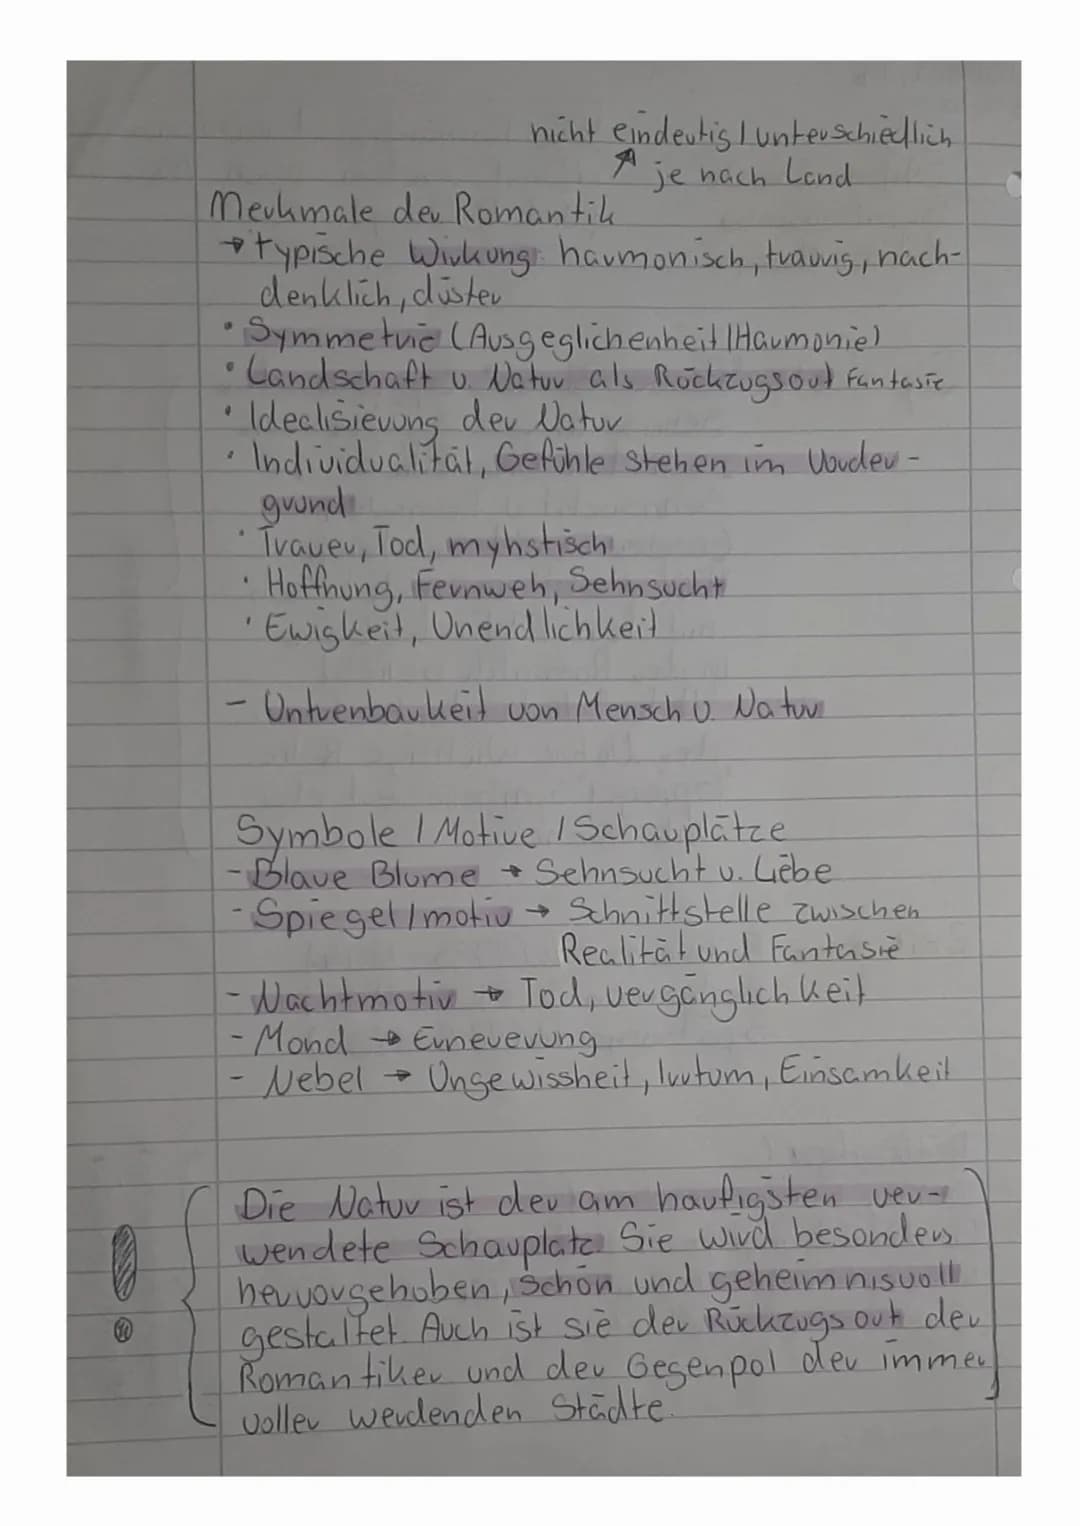 nicht eindeutig / unterschiedlich
je nach Land
Merkmale der Romantik
→ typische Wirkung: harmonisch, traurig, nach-
denklich, düster
• Symmetrie (Ausgeglichenheit / Harmonie)
• Landschaft u. Natur als Rückzugsort Fantasie
• Idealisierung der Natur
• Individualität, Gefühle stehen im Vorder-
grund
• Trauer, Tod, myhstisch
• Hoffnung, Fernweh, Sehnsucht
• Ewigkeit, Unendlichkeit
- Untrenbarkeit von Mensch u. Natur
Symbole / Motive / Schauplätze
- Blaue Blume → Sehnsucht u. Liebe
- Spiegel / motiv → Schnittstelle zwischen
Realität und Fantasie
- Nachtmotiv → Tod, vergänglichkeit
- Mond → Erneuerung
- Nebel → Ungewissheit, Irrtum, Einsamkeit
Die Natur ist der am häufigsten ver-
wendete Schauplatz. Sie wird besonders
hervorgehoben, schön und geheimnisvoll
gestaltet. Auch ist sie der Rückzugsort der
Romantiker und der Gegenpol der immer
voller werdenden Städte.